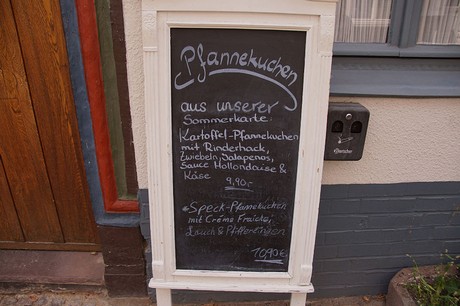 Pfannekuchen
aus unserer
Sommerkarte:
Kartoffel-Pfannekuchen
mit Rinderhack,
Zwiebeln, Jalapenos,
Sauce Hollondaise &
Käse
9,90.-
*Speck-Pfannekuchen
mit Créme Fraiche,
Lauch & Pfifferlingen
10,90.-